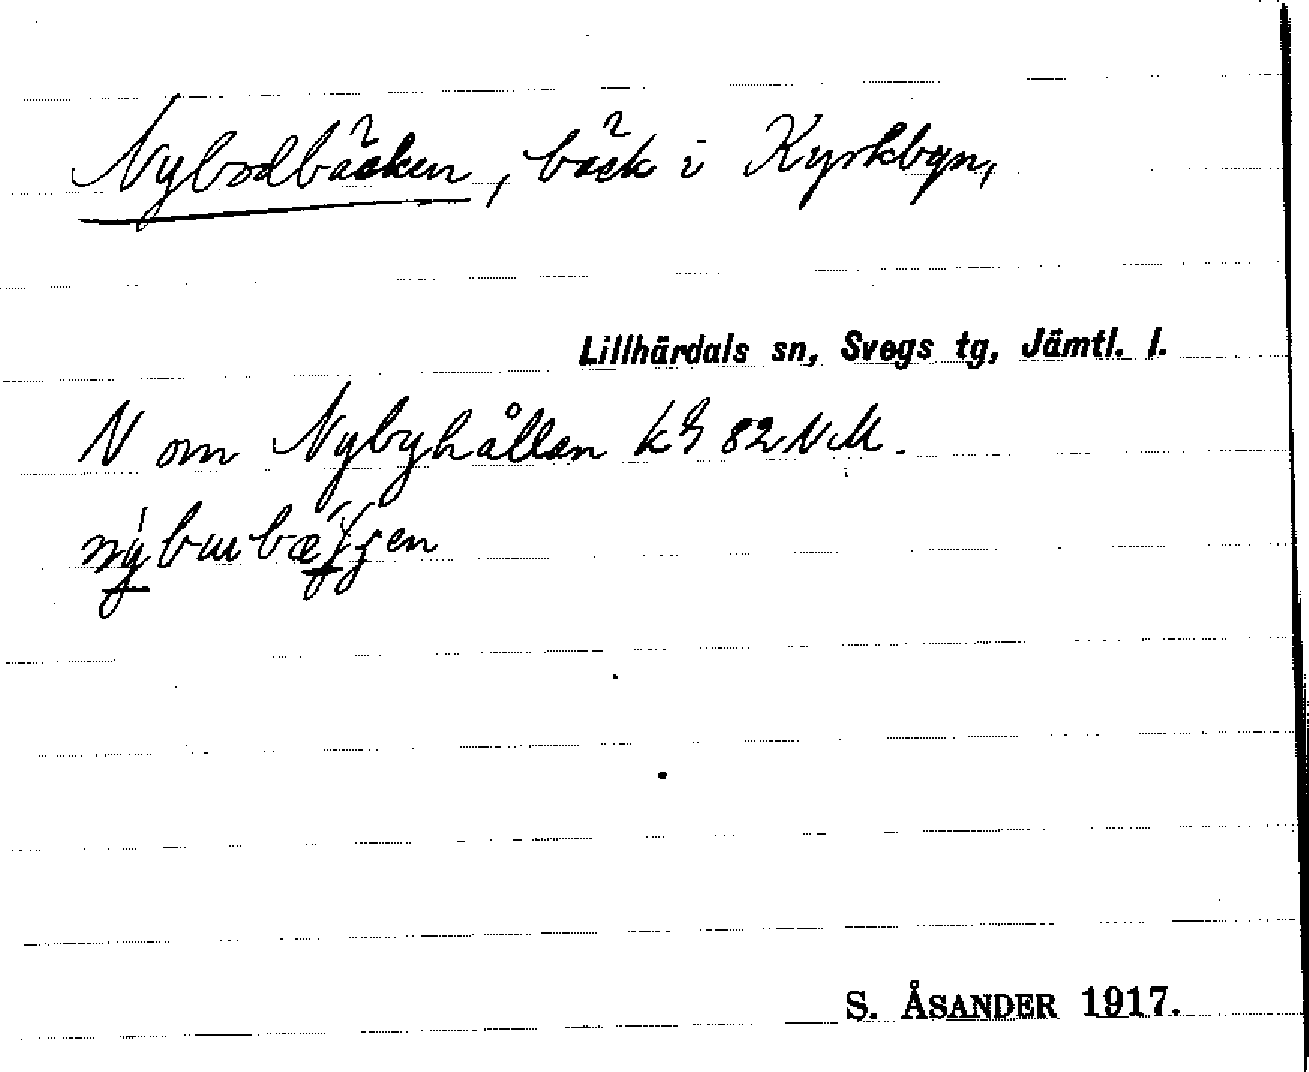 Nybodbäcken, bäck i Kyrkbyn,
Lillhärdals sn, Svegs tg, Jämtl. l.
N om Nybyhållan 82 NM.
S. ÅSANDER 1917.